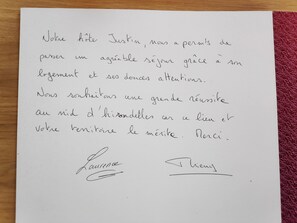 Notre hôte Justin, nous a permis de
passer un agréable séjour grâce à son
logement et ses douces attentions.
Nous souhaitons une grande réussite
au nid d'hirondelles car ce lieu et
votre territoire le mérite. Merci.
Laurence